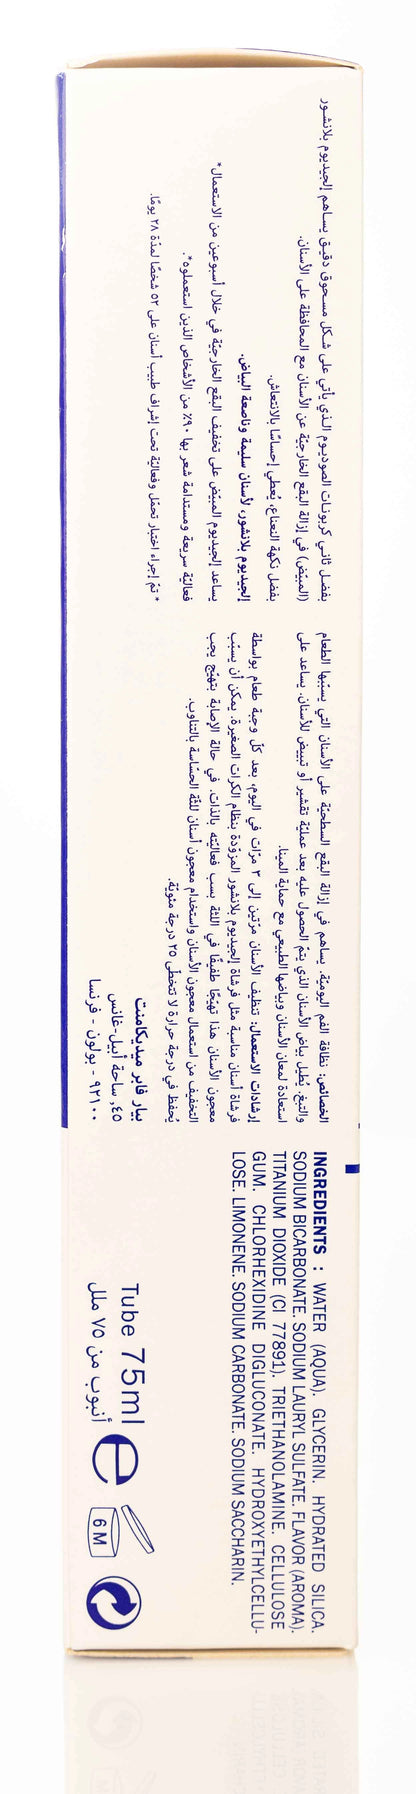 بفضل ثاني كربونات الصوديوم الذي يأتي على شكل مسحوق دقيق يساهم إلجيديوم بلانشور
(المبيّض) في إزالة البقع الخارجيّة عن الأسنان مع المحافظة على الأسنان.
بفضل نكهة النعناع، يُعطي إحساسًا بالانتعاش.
إلجيديوم بلانشور، لأسنان سليمة وناصعة البياض.
يساعد إلجيديوم المبيّض على تخفيف البقع الخارجيّة في خلال أسبوعين من الاستعمال*
فعاليّة سريعة ومستدامة شعر بها ٩٠٪ من الأشخاص الذين استعملوه*.
* تمّ إجراء اختبار تحمّل وفعاليّة تحت إشراف طبيب أسنان على ٥٢ شخصًا لمدّة ٢٨ يومًا.
الخصائص: نظافة الفم اليوميّة. يساهم في إزالة البقع السطحيّة على الأسنان التي يسبّبها الطعام
والتبغ. يُطيل بياض الأسنان الذي يتمّ الحصول عليه بعد عمليّة تقشير أو تبييض للأسنان. يساعد على
استعادة لمعان الأسنان وبياضها الطبيعي مع حماية المينا.
إرشادات الاستعمال: تنظيف الأسنان مرّتين إلى ٣ مرّات في اليوم، بعد كلّ وجبة طعام بواسطة
فرشاة أسنان مناسبة مثل فرشاة إلجيديوم بلانشور المزوّدة بنظام الكرات الصغيرة. يمكن أن يسبّب
معجون الأسنان هذا تهيّجًا طفيفًا في اللثة بسبب فعاليّته بالذات. في حالة الإصابة بتهيّج يجب
التخفيف من استعمال معجون الأسنان واستخدام معجون أسنان للثة الحسّاسة بالتناوب.
يُحفظ في درجة حرارة لا تتخطّى ٢٥ درجة مئويّة.
بيار فابر ميديكامنت
٤٥، ساحة أبيل-غانس
٩٢١٠٠ - بولون - فرنسا
INGREDIENTS : WATER (AQUA). GLYCERIN. HYDRATED SILICA.
SODIUM BICARBONATE. SODIUM LAURYL SULFATE. FLAVOR (AROMA).
TITANIUM DIOXIDE (CI 77891). TRIETHANOLAMINE. CELLULOSE
GUM. CHLORHEXIDINE DIGLUCONATE. HYDROXYETHYLCELLU-
LOSE. LIMONENE. SODIUM CARBONATE. SODIUM SACCHARIN.
Tube 75ml e
أنبوب من ٧٥ ملل
6 M